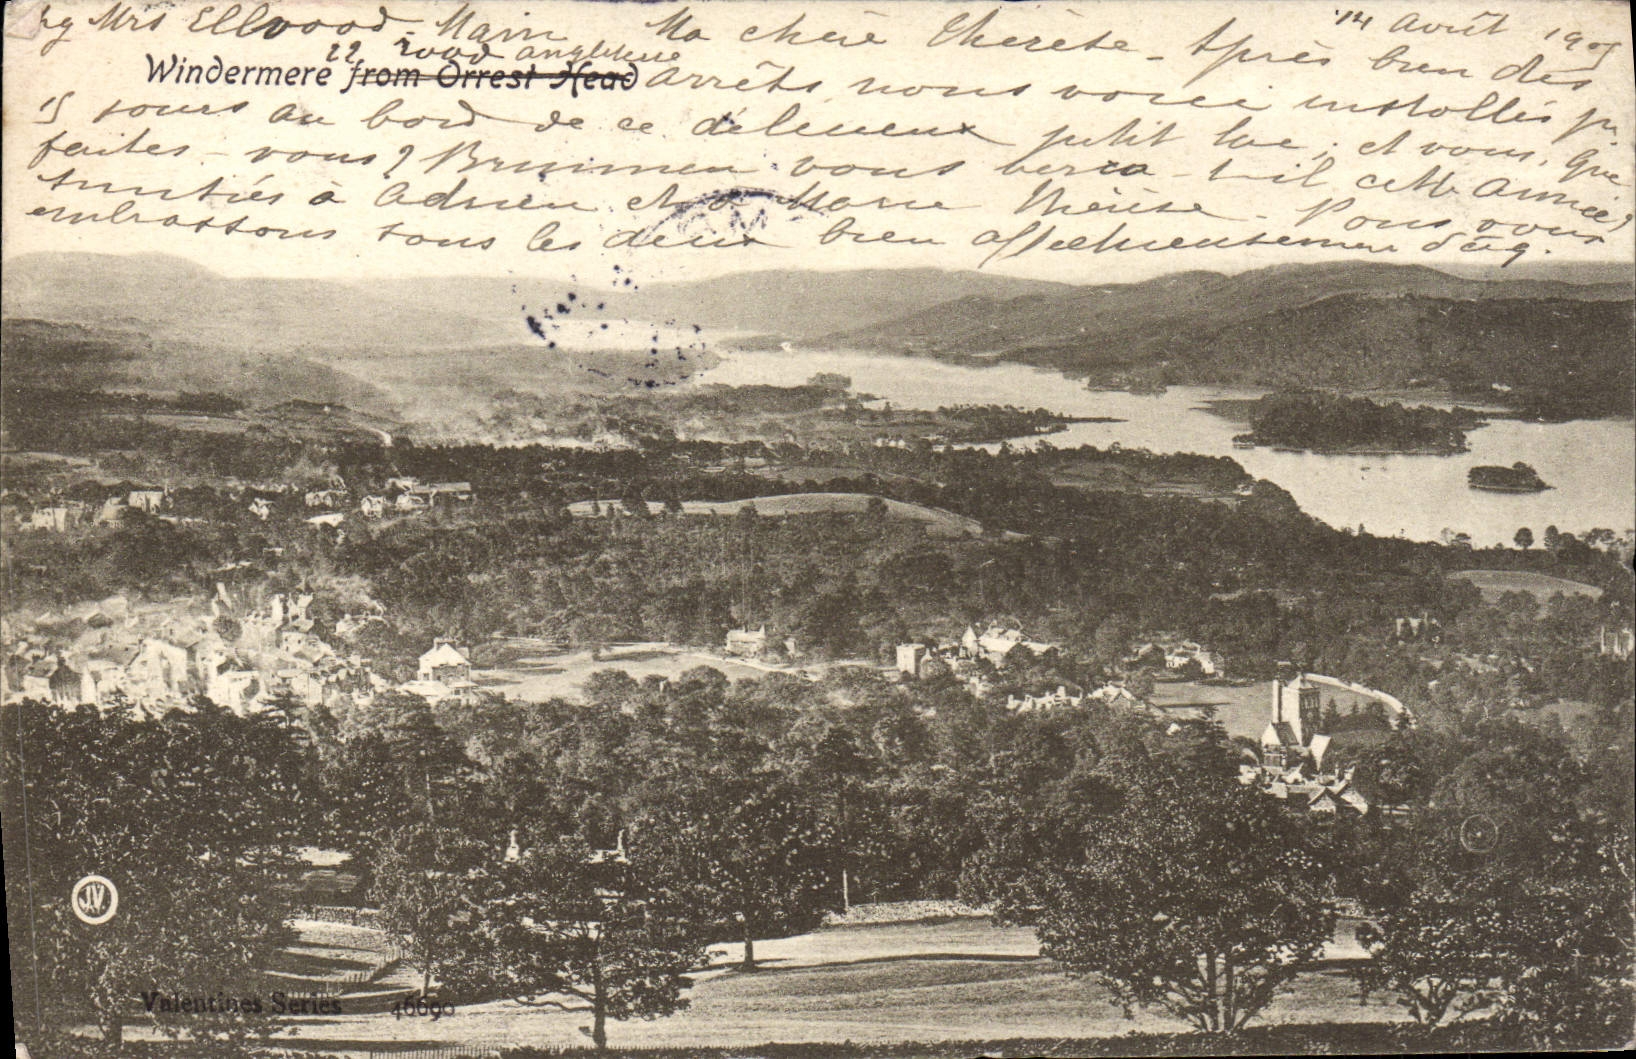 by Mrs Ellwood Main
22, road angleterre
14 août 1905
Windermere from Orrest Head
Ma chère Thérèse - Après bien des
arrêts nous voici installés pr
15 jours au bord de ce délicieux petit lac, et vous, que
faites-vous? Brunnen vous verra-t-il cette année?
Amitiés à Adrien et à Marie Thérèse - Nous vous
embrassons tous les deux bien affectueusement
Valentines Series 46690
JV